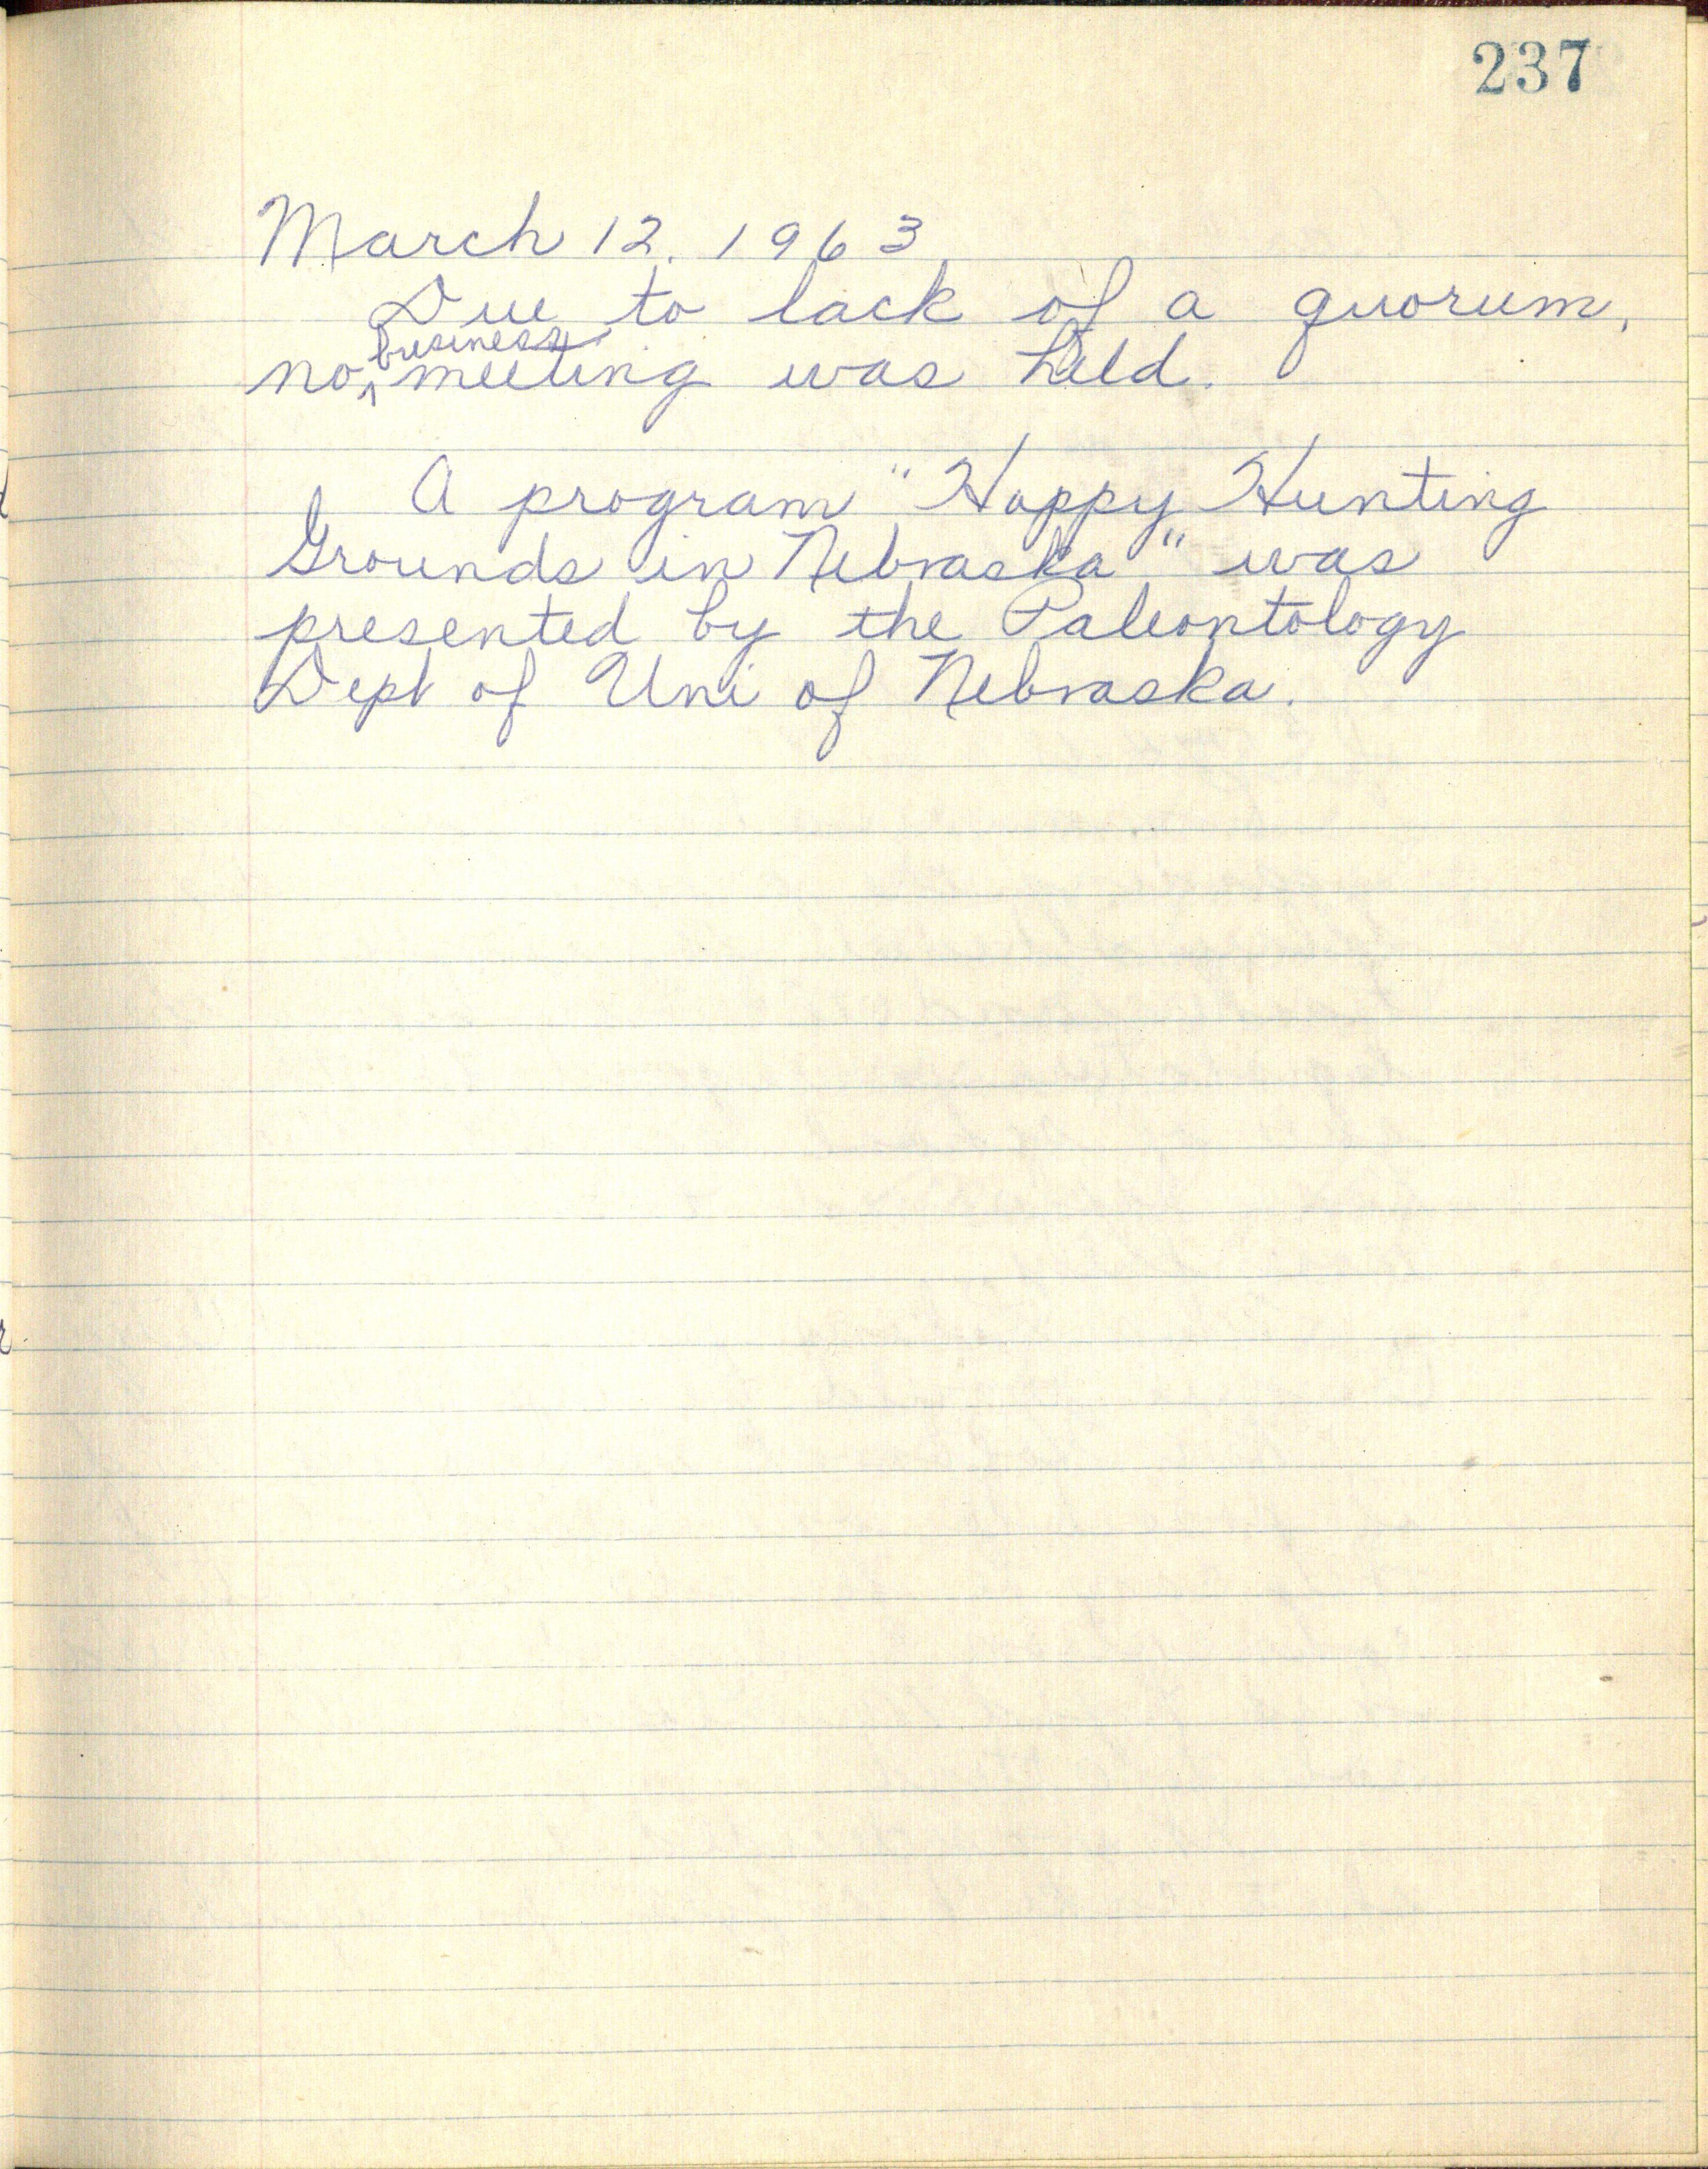 237
March 12, 1963
Due to lack of a quorum,
no business meeting was held.
A program "Happy Hunting
Grounds in Nebraska" was
presented by the Paleontology
Dept of Uni of Nebraska.